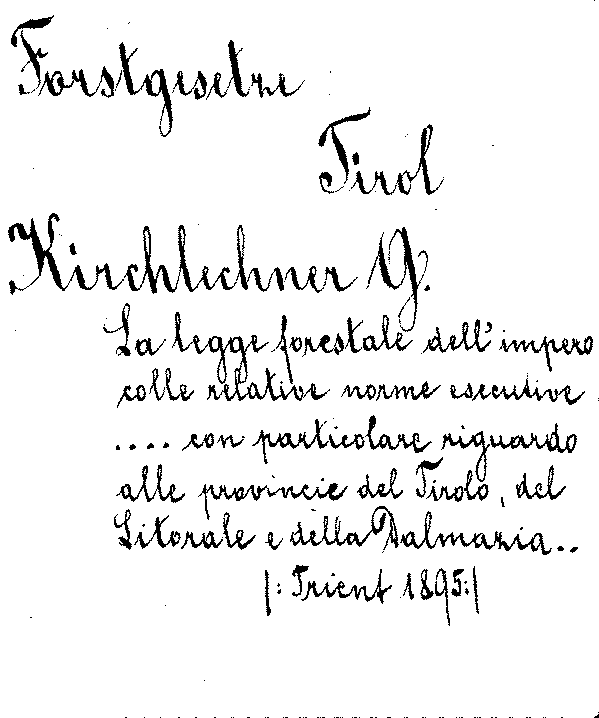 Forstgesetze
Tirol
Kirchlechner G.
La legge forestale dell'impero
colle relative norme esecutive
.... con particolare riguardo
alle provincie del Tirolo, del
Litorale e della Dalmazia..
|: Trient 1895:|